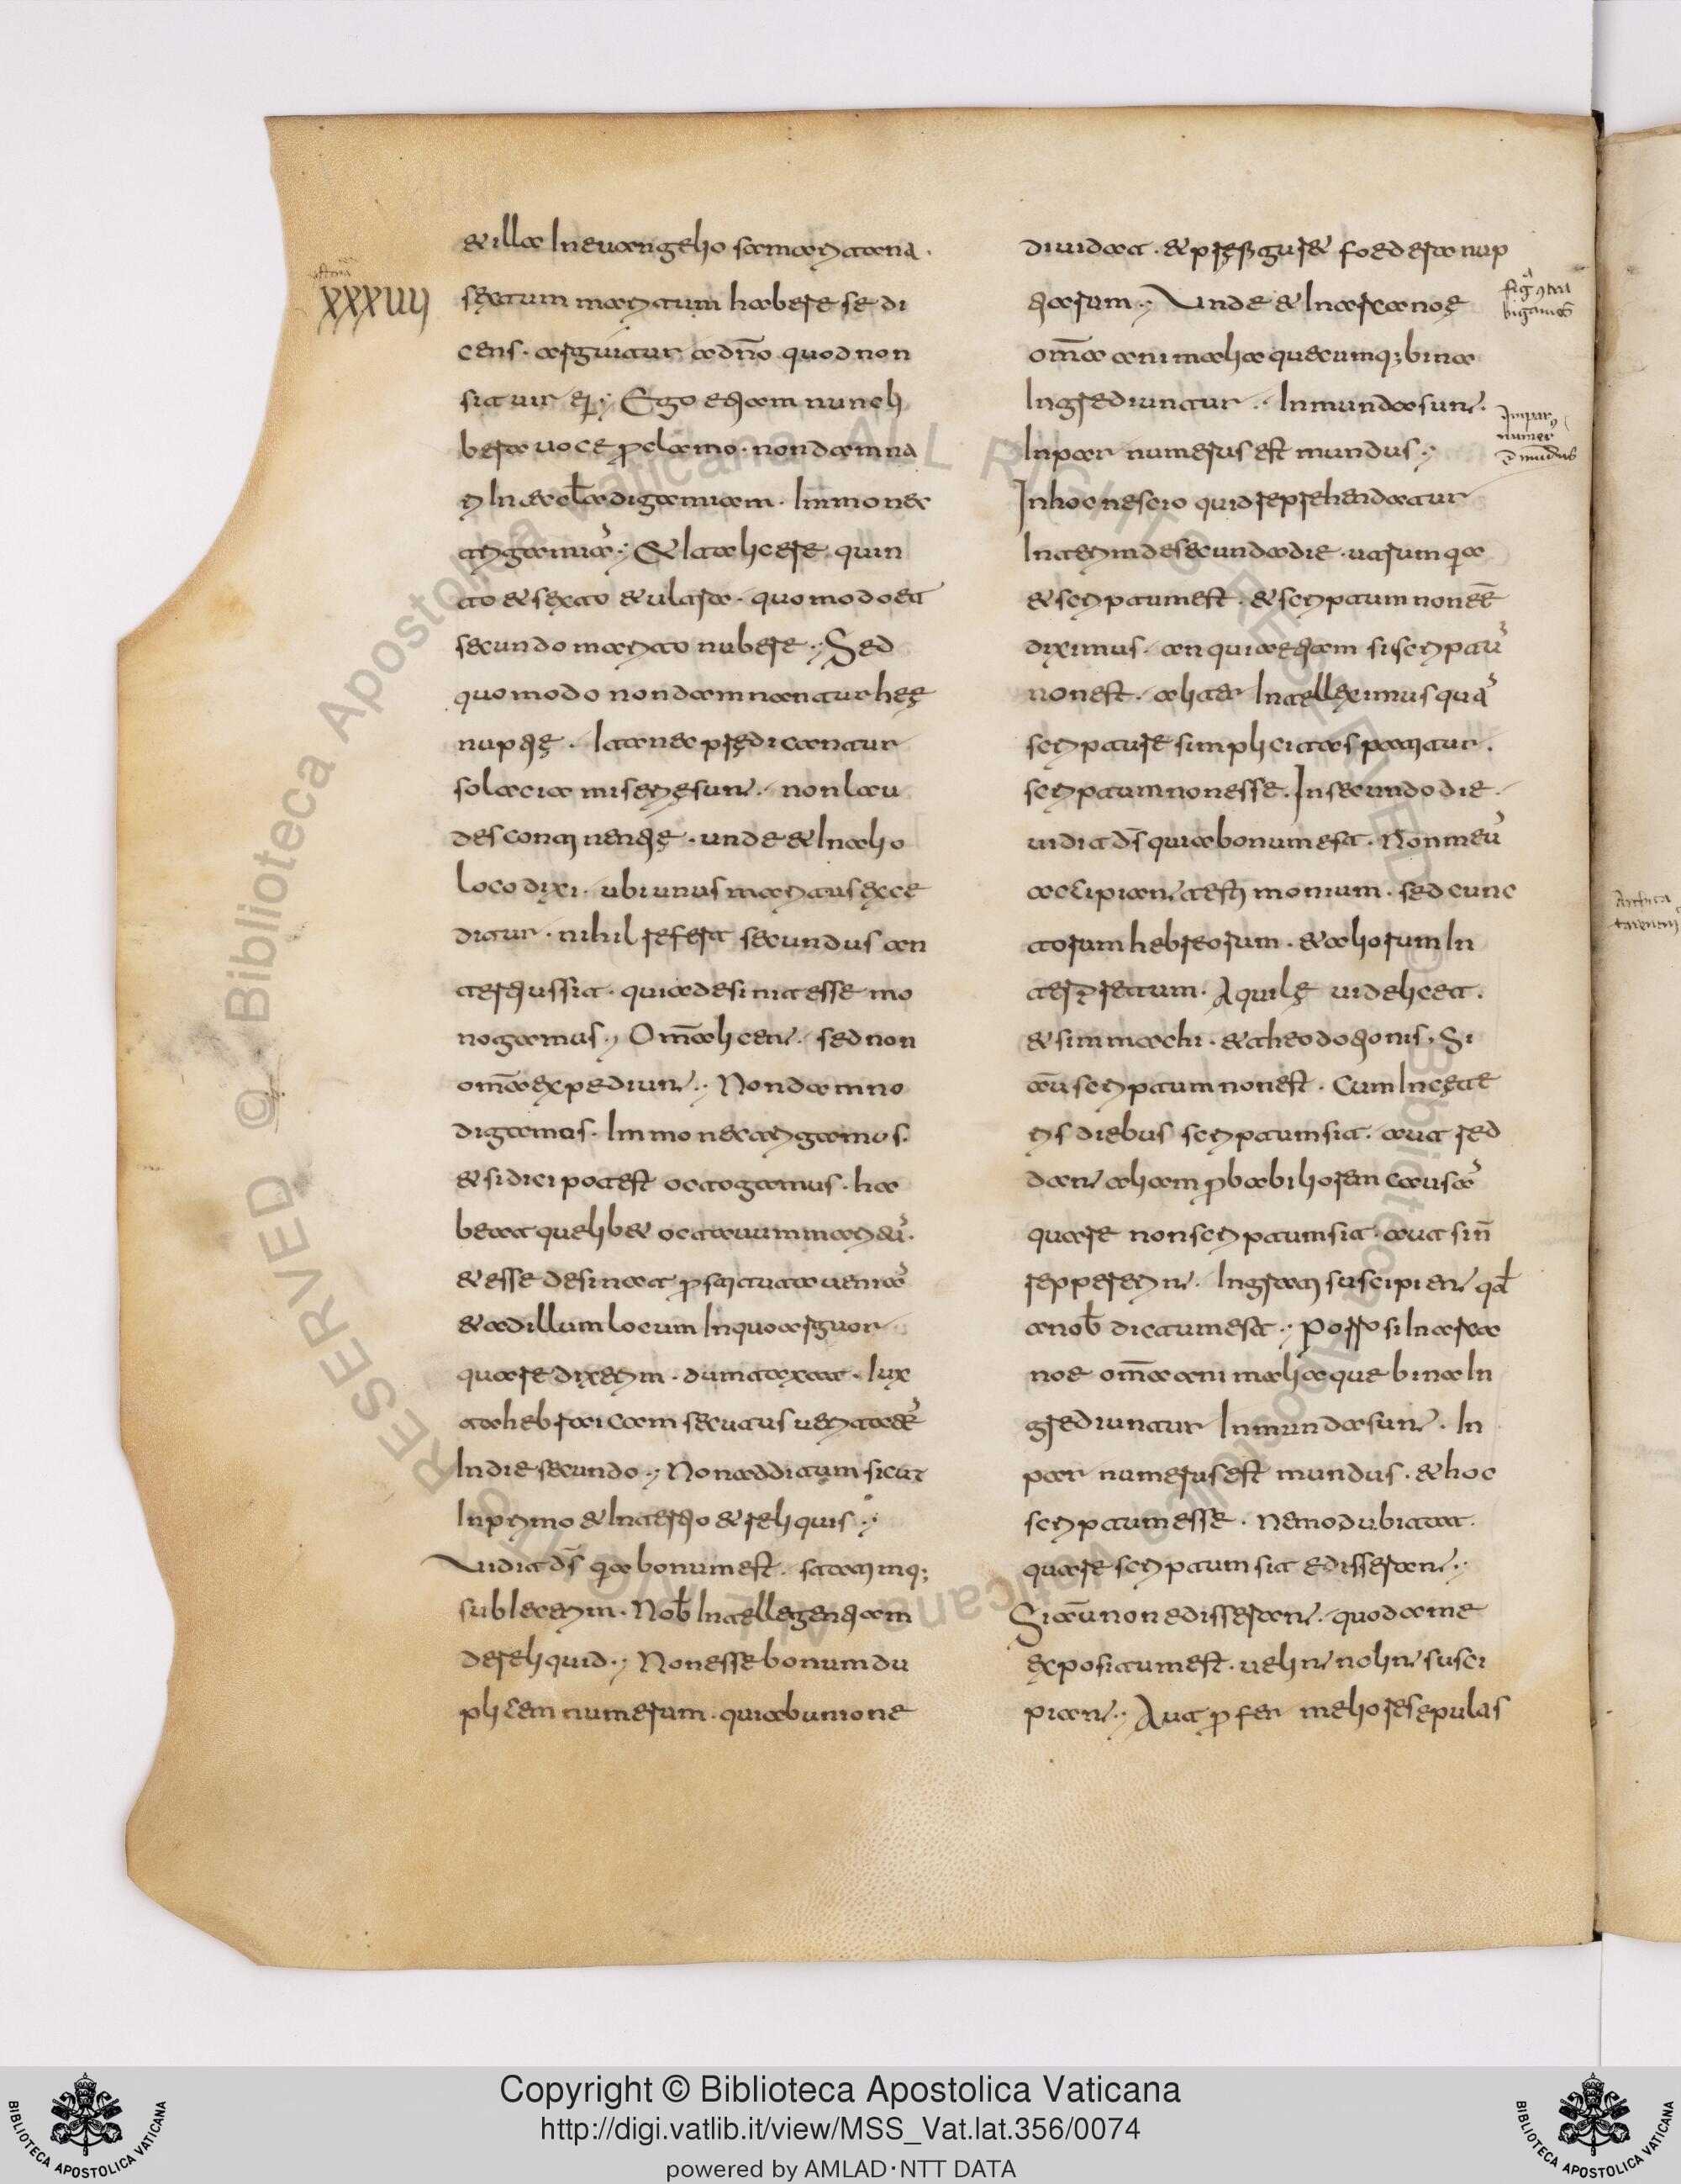 & illa In euangelio samaritana.
XXXUII
sextum maritum habere se di
cens. arguitur a dn̄o quod non
sit uir ei; Ego etiam nunc li
bera uoce p̱clamo. non damna
ri In ecclā digamiam. Immo nec
trigamiā; & Ita licere quin
to & sexto & ultra. quomodo et
secundo marito nubere; Sed
quomodo non damnantur hęę
nuptię. Ita nec prędicantur
solacia miserię sunt. non lau
des continentię. unde & In alio
loco dixi. ubi unus maritus exce
ditur. nihil refert secundus an
tertius sit. quia desinit esse mo
nogamus; Om̄a licent. sed non
om̄a expediunt; Non damno
digamos. Immo nec trigamos.
& si dici potest octogamus. ha
beat quelib& octauum maritū.
& esse desinat p̱stituta ueniā
& ad illum locum In quo arguor
quare dixerim. dumtaxat. Iux
ta hebraicam secutus ueritatē
In die secundo; Non additum sicut
In primo & In tertio & reliquis;
Uidit dš qa bonum est. statimq;
sublecerim. Nob̄ Intellegentiam
dereliquid; Non esse bonum du
plicem numerum. quia b unione
diuidat. & prefigur& foedera nup
tiarum; Unde & In arca noę
om̄a animalia quecumq; bina
Ingrediuntur. Inmunda sunt.
Inpar numerus est mundus;
In hoc nescio quid reprehendatur
Interim de secunda die. utrum qa
& scriptum est. & scriptum non eē
diximus. an quia etiam si scriptū
non est. aliter Intelleximus quā
scripture simplicitas patitur.
scriptum non esse. In secundo die.
uidit dš quia bonum est. Non meū
accipiant testimonium. sed cunc
torum hebreorum. & aliorum In
terp̱retum. Aquilę uidelicet.
& simmachi. & theodotionis. Si
aū scriptum non est. Cum In cęte
ris diebus scriptum sit. aut red
dant aliam p̱babiliorem causā
quare non scriptum sit. aut si n̄
reppererint. Ingrati suscipient qd̄
a nob̄ dictum est; Porro si In arca
noe om̄a animalia que bina In
grediuntur Inmunda sunt. In
par numerus est mundus. & hoc
scriptum esse. nemo dubitat.
quare scriptum sit edisserant;
Si aū non edisserant. quod a me
expositum est. uelint nolint susci
piant; Aut p̱fer meliores epulas
Inpar
numer
ē mundus
Copyright © Biblioteca Apostolica Vaticana
http://digi.vatlib.it/view/MSS_Vat.lat.356/0074
powered by AMLAD·NTT DATA
BIBLIOTECA APOSTOLICA VATICANA
BIBLIOTECA APOSTOLICA VATICANA